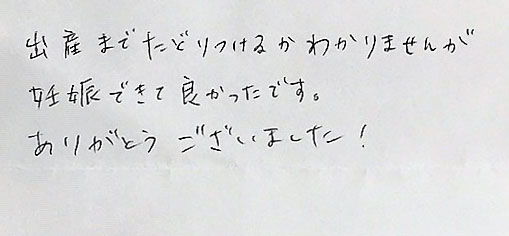 出産までたどりつけるかわかりませんが
妊娠できて良かったです。
ありがとうございました!